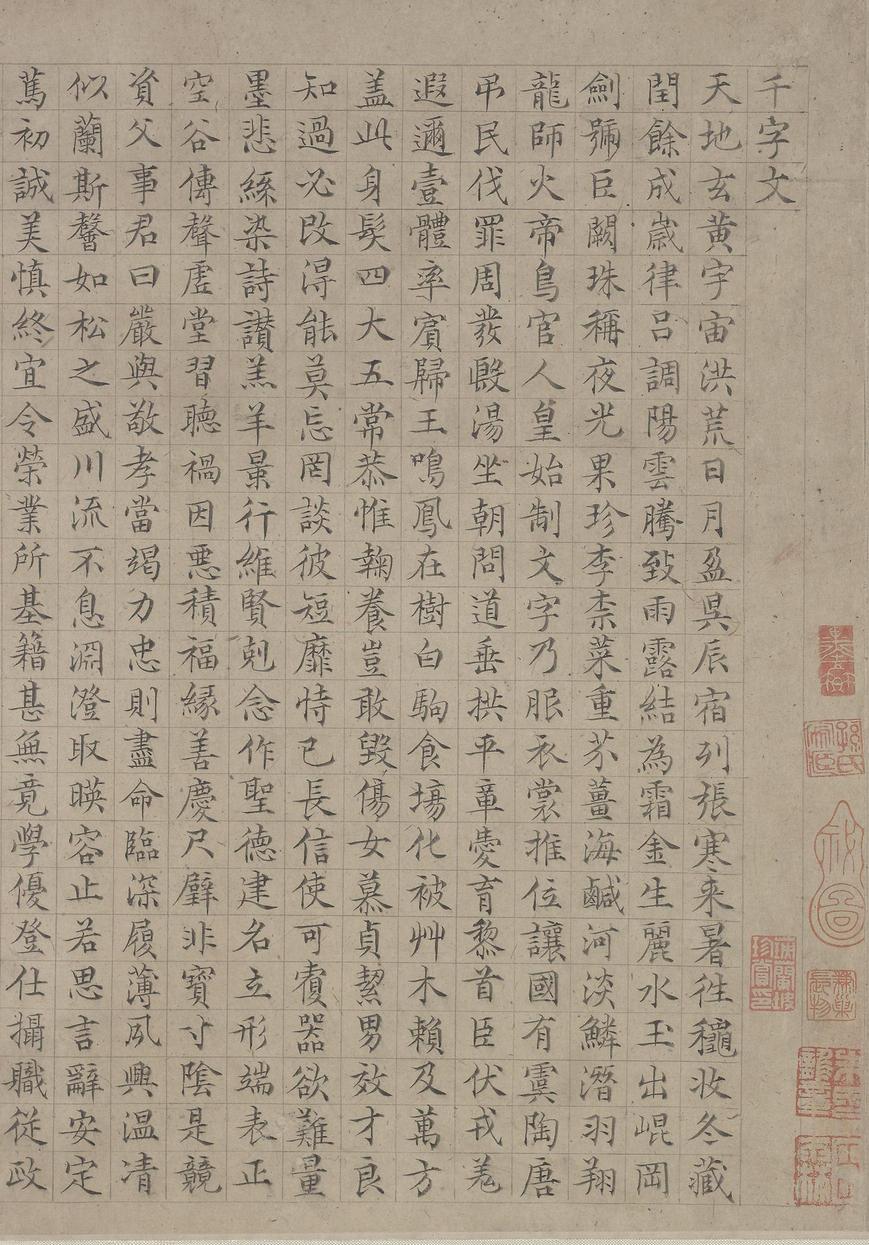 千字文
天地玄黄宇宙洪荒日月盈昃辰宿列張寒来暑往龝收冬藏
閏餘成歲律吕調陽雲騰致雨露結為霜金生麗水玉出崐岡
劍號巨闕珠稱夜光果珍李柰菜重芥薑海鹹河淡鱗潛羽翔
龍師火帝鳥官人皇始制文字乃服衣裳推位讓國有虞陶唐
弔民伐罪周發殷湯坐朝問道垂拱平章愛育黎首臣伏戎羌
遐邇壹體率賓歸王鳴鳳在樹白駒食場化被艸木賴及萬方
盖此身髮四大五常恭惟鞠養豈敢毀傷女慕貞絜男效才良
知過必改得能莫忘罔談彼短靡恃己長信使可覆器欲難量
墨悲絲染詩讚羔羊景行維賢剋念作聖德建名立形端表正
空谷傳聲虛堂習聽禍因惡積福緣善慶尺璧非寶寸陰是競
資父事君曰嚴與敬孝當竭力忠則盡命臨深履薄夙興温凊
似蘭斯馨如松之盛川流不息淵澄取暎容止若思言辭安定
篤初誠美慎終宜令榮業所基籍甚無竟學優登仕攝職從政